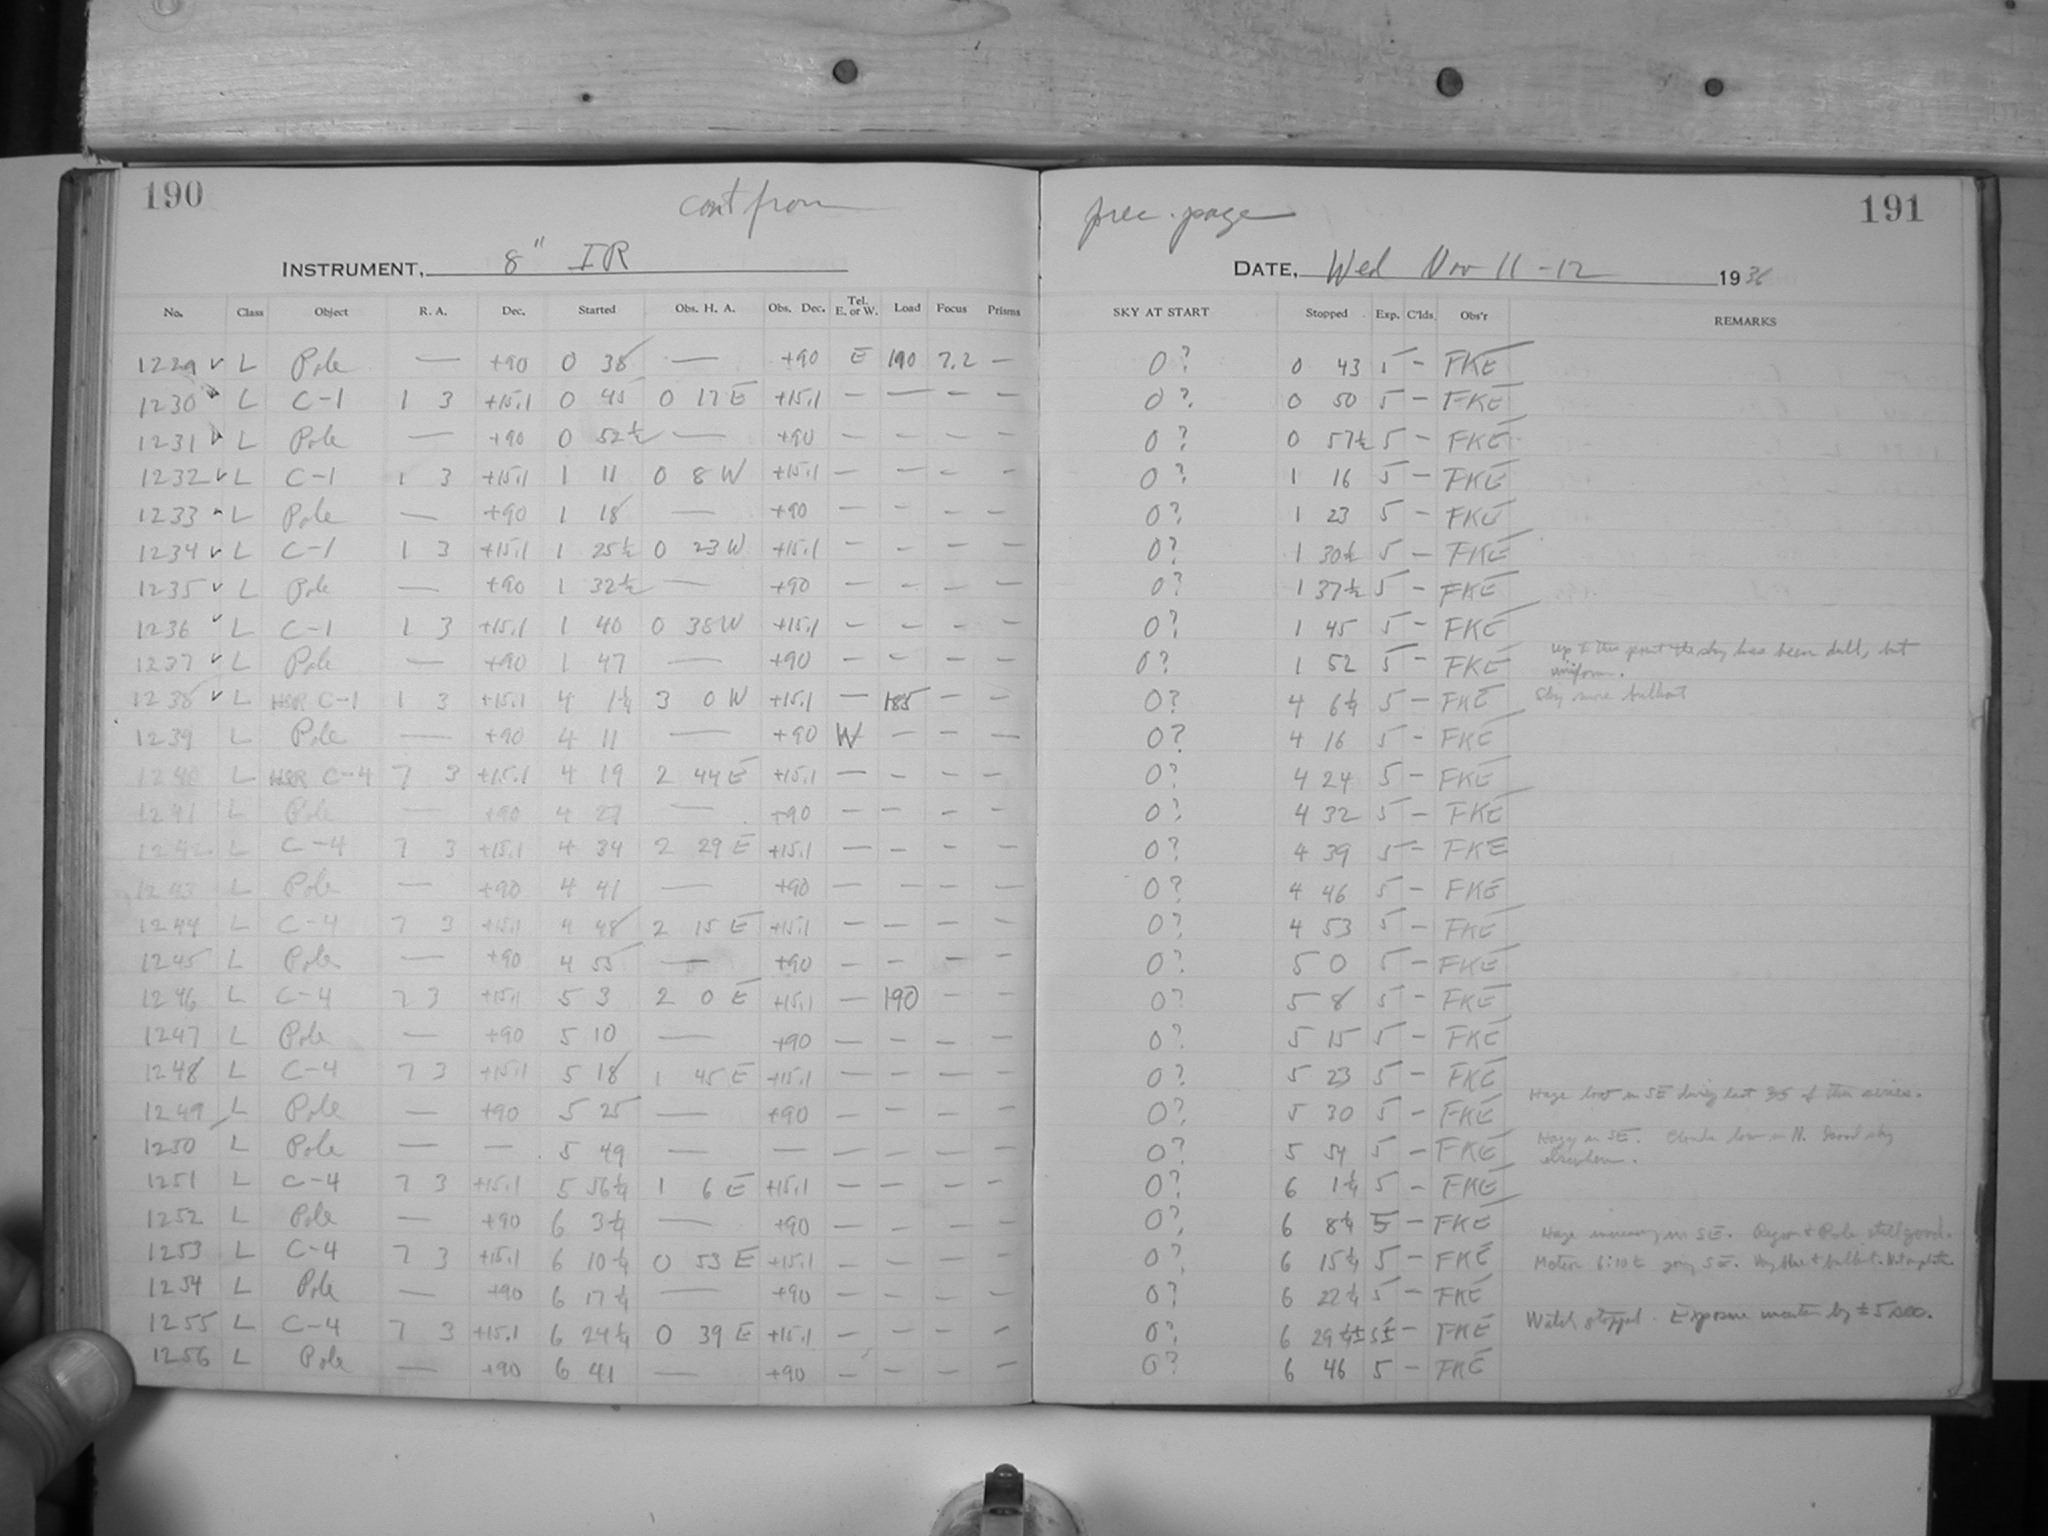 190 cont from prec. page 191
INSTRUMENT, 8" IR DATE, Wed Nov 11-12 1936
No. Class Object R. A. Dec. Started Obs. H. A. Obs. Dec. Tel. E. or W. Load Focus Prisms SKY AT START Stopped Exp. C'lds. Obs'r REMARKS
1229 ✓ L Pole — +90 0 38 — +90 E 190 7.2 — 0? 0 43 5 — FKE
1230 ✓ L C-1 1 3 +15.1 0 45 0 17 E +15.1 — — — — 0? 0 50 5 — FKE
1231 ✓ L Pole — +90 0 52½ — +90 — — — — 0? 0 57½ 5 — FKE
1232 ✓ L C-1 1 3 +15.1 1 11 0 8 W +15.1 — — — — 0? 1 16 5 — FKE
1233 ✓ L Pole — +90 1 18 — +90 — — — — 0? 1 23 5 — FKE
1234 ✓ L C-1 1 3 +15.1 1 25½ 0 23 W +15.1 — — — — 0? 1 30½ 5 — FKE
1235 ✓ L Pole — +90 1 32½ — +90 — — — — 0? 1 37½ 5 — FKE
1236 ✓ L C-1 1 3 +15.1 1 40 0 38 W +15.1 — — — — 0? 1 45 5 — FKE
1237 ✓ L Pole — +90 1 47 — +90 — — — — 0? 1 52 5 — FKE Up to this point the sky has been dull, but
uniform.
1238 ✓ L C-1 1 3 +15.1 4 1¼ 3 0 W +15.1 — 185 — — 0? 4 6¼ 5 — FKE Sky more brilliant
1239 L Pole — +90 4 11 — +90 W — — — 0? 4 16 5 — FKE
1240 L C-4 7 3 +15.1 4 19 2 44 E +15.1 — — — — 0? 4 24 5 — FKE
1241 L Pole — +90 4 27 — +90 — — — — 0? 4 32 5 — FKE
1242 L C-4 7 3 +15.1 4 34 2 29 E +15.1 — — — — 0? 4 39 5 — FKE
1243 L Pole — +90 4 41 — +90 — — — — 0? 4 46 5 — FKE
1244 L C-4 7 3 +15.1 4 48 2 15 E +15.1 — — — — 0? 4 53 5 — FKE
1245 L Pole — +90 4 55 — +90 — — — — 0? 5 0 5 — FKE
1246 L C-4 7 3 +15.1 5 3 2 0 E +15.1 — 190 — — 0? 5 8 5 — FKE
1247 L Pole — +90 5 10 — +90 — — — — 0? 5 15 5 — FKE
1248 L C-4 7 3 +15.1 5 18 1 45 E +15.1 — — — — 0? 5 23 5 — FKE
1249 L Pole — +90 5 25 — +90 — — — — 0? 5 30 5 — FKE Haze low in SE during last of this series.
1250 L Pole — — 5 49 — — — — — — 0? 5 54 5 — FKE Hazy in SE. Clouds low in N. Good sky
elsewhere.
1251 L C-4 7 3 +15.1 5 56¼ 1 6 E +15.1 — — — — 0? 6 1¼ 5 — FKE
1252 L Pole — +90 6 3¼ — +90 — — — — 0? 6 8¼ 5 — FKE Haze increasing in SE. Region + Pole still good.
1253 L C-4 7 3 +15.1 6 10¼ 0 53 E +15.1 — — — — 0? 6 15¼ 5 — FKE Meteor 6:10± going SE. Very blue + brilliant. Not on plate.
1254 L Pole — +90 6 17¼ — +90 — — — — 0? 6 22¼ 5 — FKE
1255 L C-4 7 3 +15.1 6 24¼ 0 39 E +15.1 — — — — 0? 6 29¼± 5± — FKE Watch stopped. Exposure uncertain by ±5 sec.
1256 L Pole — +90 6 41 — +90 — — — — 0? 6 46 5 — FKE